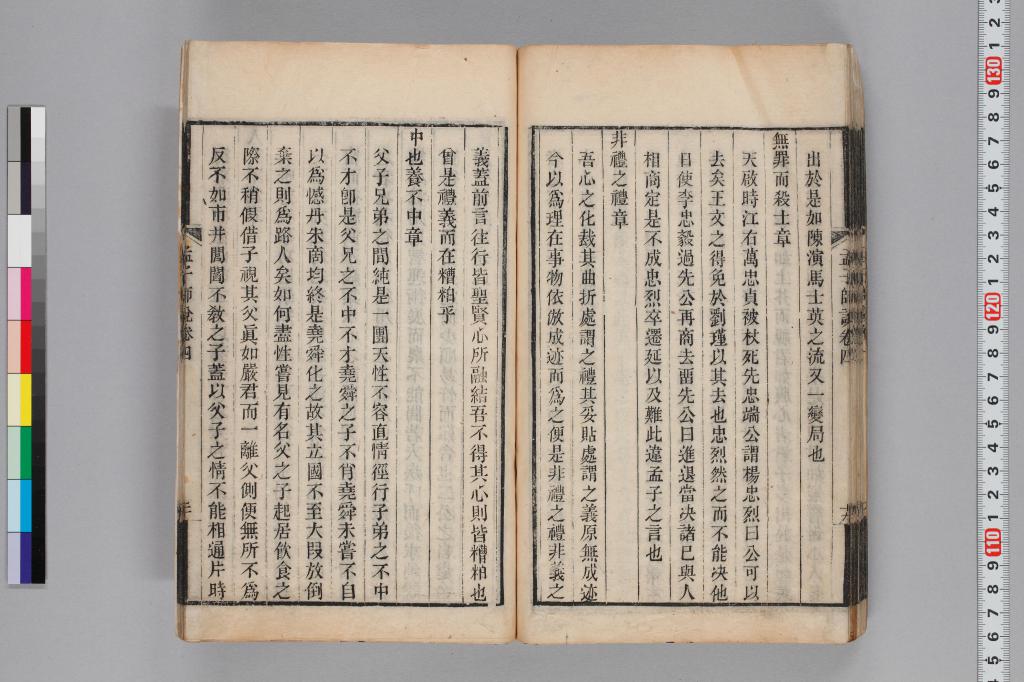 出於是如陳演馬士英之流又一變局也
無罪而殺士章
天啟時江右萬忠貞被杖死先忠端公謂楊忠烈曰公可以
去矣王文之得免於劉瑾以其去也忠烈然之而不能決他
日使李忠毅過先公再商去畱先公曰進退當決諸已與人
相商定是不成忠烈卒遷延以及難此違孟子之言也
非禮之禮章
吾心之化裁其曲折處謂之禮其妥貼處謂之義原無成迹
今以爲理在事物依倣成迹而爲之便是非禮之禮非義之
孟子師說卷四
義蓋前言往行皆聖賢心所融結吾不得其心則皆糟粕也
曾是禮義而在糟粕乎
中也養不中章
父子兄弟之間純是一團天性不容直情徑行子弟之不中
不才卽是父兄之不中不才堯舜之子不肖堯舜未嘗不自
以爲憾丹朱商均終是堯舜化之故其立國不至大叚放倒
棄之則爲路人矣如何盡性嘗見有名父之子起居飲食之
際不稍假借子視其父眞如嚴君而一離父側便無所不爲
反不如市井閭閻不敎之子蓋以父子之情不能相通片時
孟子師說卷四
130
120
110